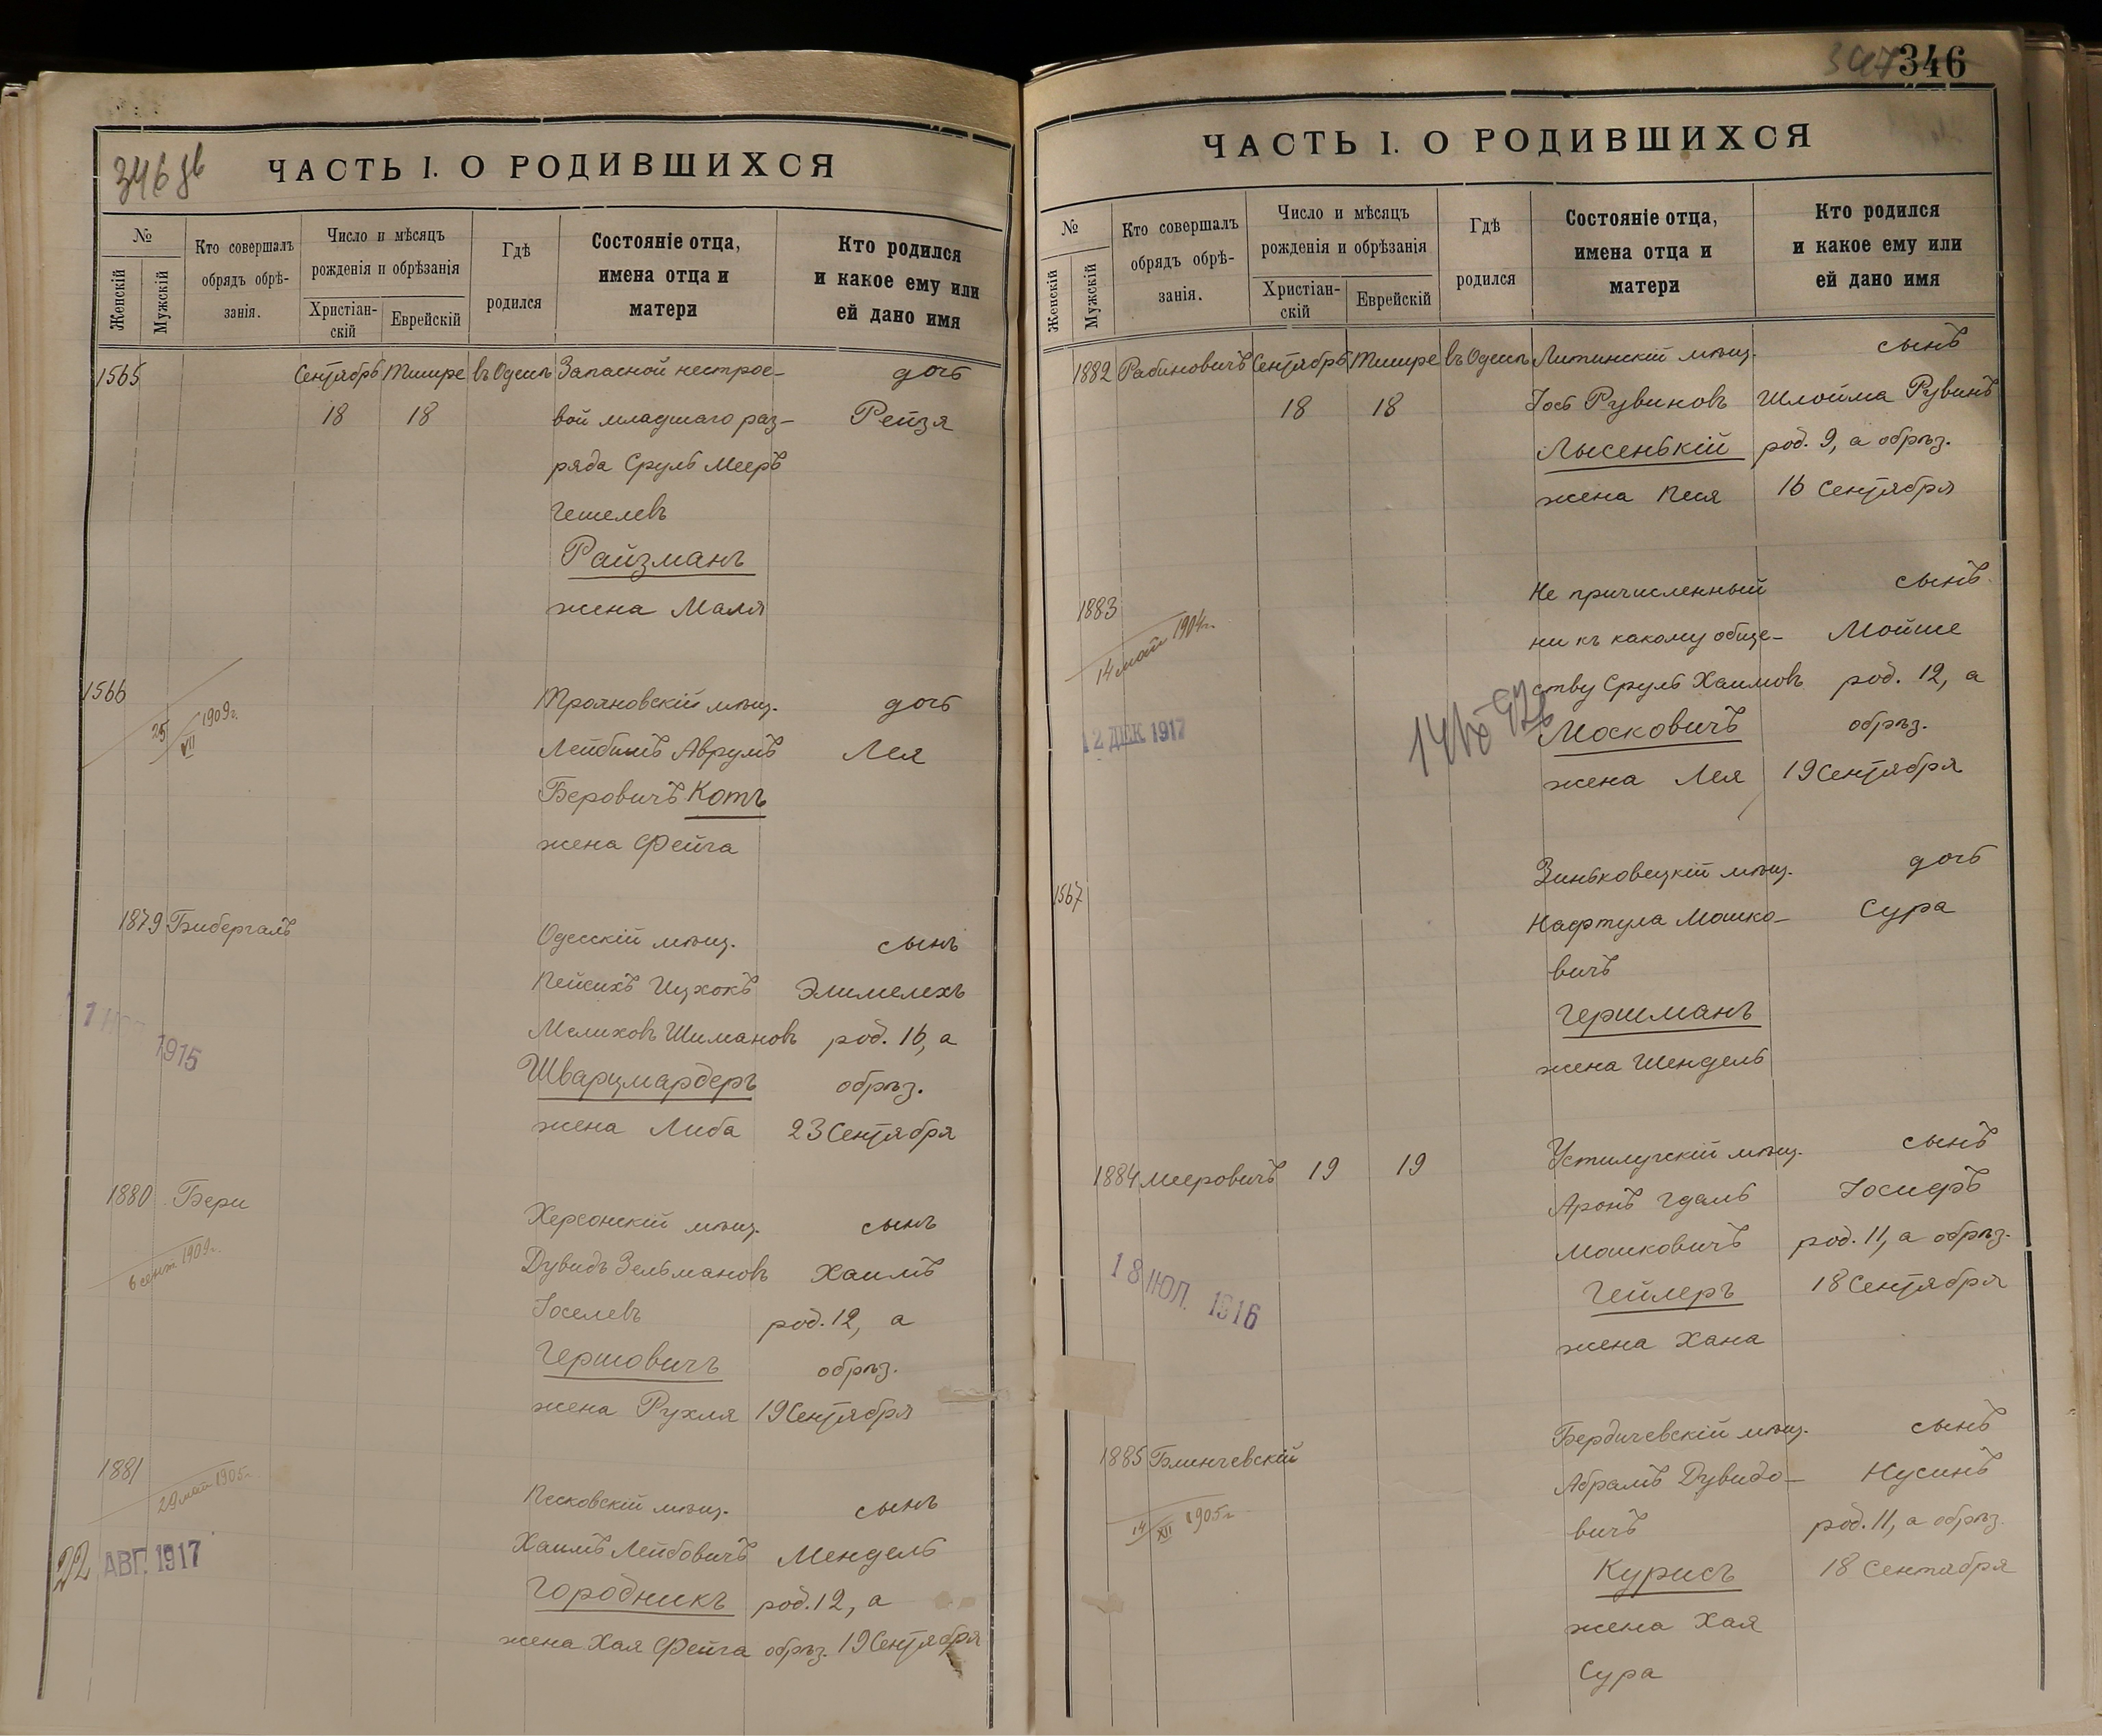 346 об
ЧАСТЬ I. О РОДИВШИХСЯ
№
Женскій
Мужскій
Кто совершалъ
обрядъ обрѣ-
занія.
Число и мѣсяцъ
рожденія и обрѣзанія
Христіан-
скій
Еврейскій
Гдѣ
родился
Состояніе отца,
имена отца и
матери
Кто родился
и какое ему или
ей дано имя
1565 Сентябрь Тишре въ Одессѣ Запасной нестрое- дочь
18 18 вой младшаго раз- Рейзя
ряда Сруль Мееръ
Гешелевъ
Райзманъ
жена Маля
1566 Трояновскій мѣщ. дочь
25/VII 1909г. Лейбишъ Аврумъ Лея
Беровичъ Котъ
жена Фейга
1879 Бибергалъ Одесскій мѣщ. сынъ
Пейсихъ Ицхокъ Элимелехъ
1915 Мелиховъ Шимановъ род. 16, а
Шварцмардеръ обрѣз.
жена Либа 23 Сентября
1880 Бери Херсонскій мѣщ. сынъ
6 сент 1909г. Дувидъ Зельмановъ Хаимъ
Іоселевъ род. 12, а
Гершовичъ обрѣз.
жена Рухля 19 Сентября
1881 Песковскій мѣщ. сынъ
29 май 1905г.
22 АВГ. 1917 Хаимъ Лейбовичъ Мендель
Городникъ род. 12, а
жена Хая Фейга обрѣз. 19 Сентября
347 346
ЧАСТЬ I. О РОДИВШИХСЯ
№
Женскій
Мужскій
Кто совершалъ
обрядъ обрѣ-
занія.
Число и мѣсяцъ
рожденія и обрѣзанія
Христіан-
скій
Еврейскій
Гдѣ
родился
Состояніе отца,
имена отца и
матери
Кто родился
и какое ему или
ей дано имя
1882 Рабиновичъ Сентябрь Тишре въ Одессѣ Литинскій мѣщ. сынъ
18 18 Іось Рувиновъ Шлойма Рувинъ
Лысенькій род. 9, а обрѣз.
жена Песя 16 Сентября
1883 Не причисленный сынъ
14 май 1904г. ни къ какому обще- Мойше
ству Сруль Хаимовъ род. 12, а
12 ДЕК 1917 Московичъ обрѣз.
жена Лея 19 Сентября
1567 Зиньковецкій мѣщ. дочь
Нафтула Мошко- Сура
вичъ
Гершманъ
жена Шендель
1884 Мееровичъ 19 19 Устилугскій мѣщ. сынъ
Аронъ Гдаль Іосифъ
18 ІЮЛ. 1916 Мошковичъ род. 11, а обрѣз.
Гейлеръ 18 Сентября
жена Хана
1885 Блинчевскій Бердичевскій мѣщ. сынъ
14/XII 1905г. Абрамъ Дувидо- Нусинъ
вичъ род. 11, а обрѣз.
Курисъ 18 Сентября
жена Хая
Сура